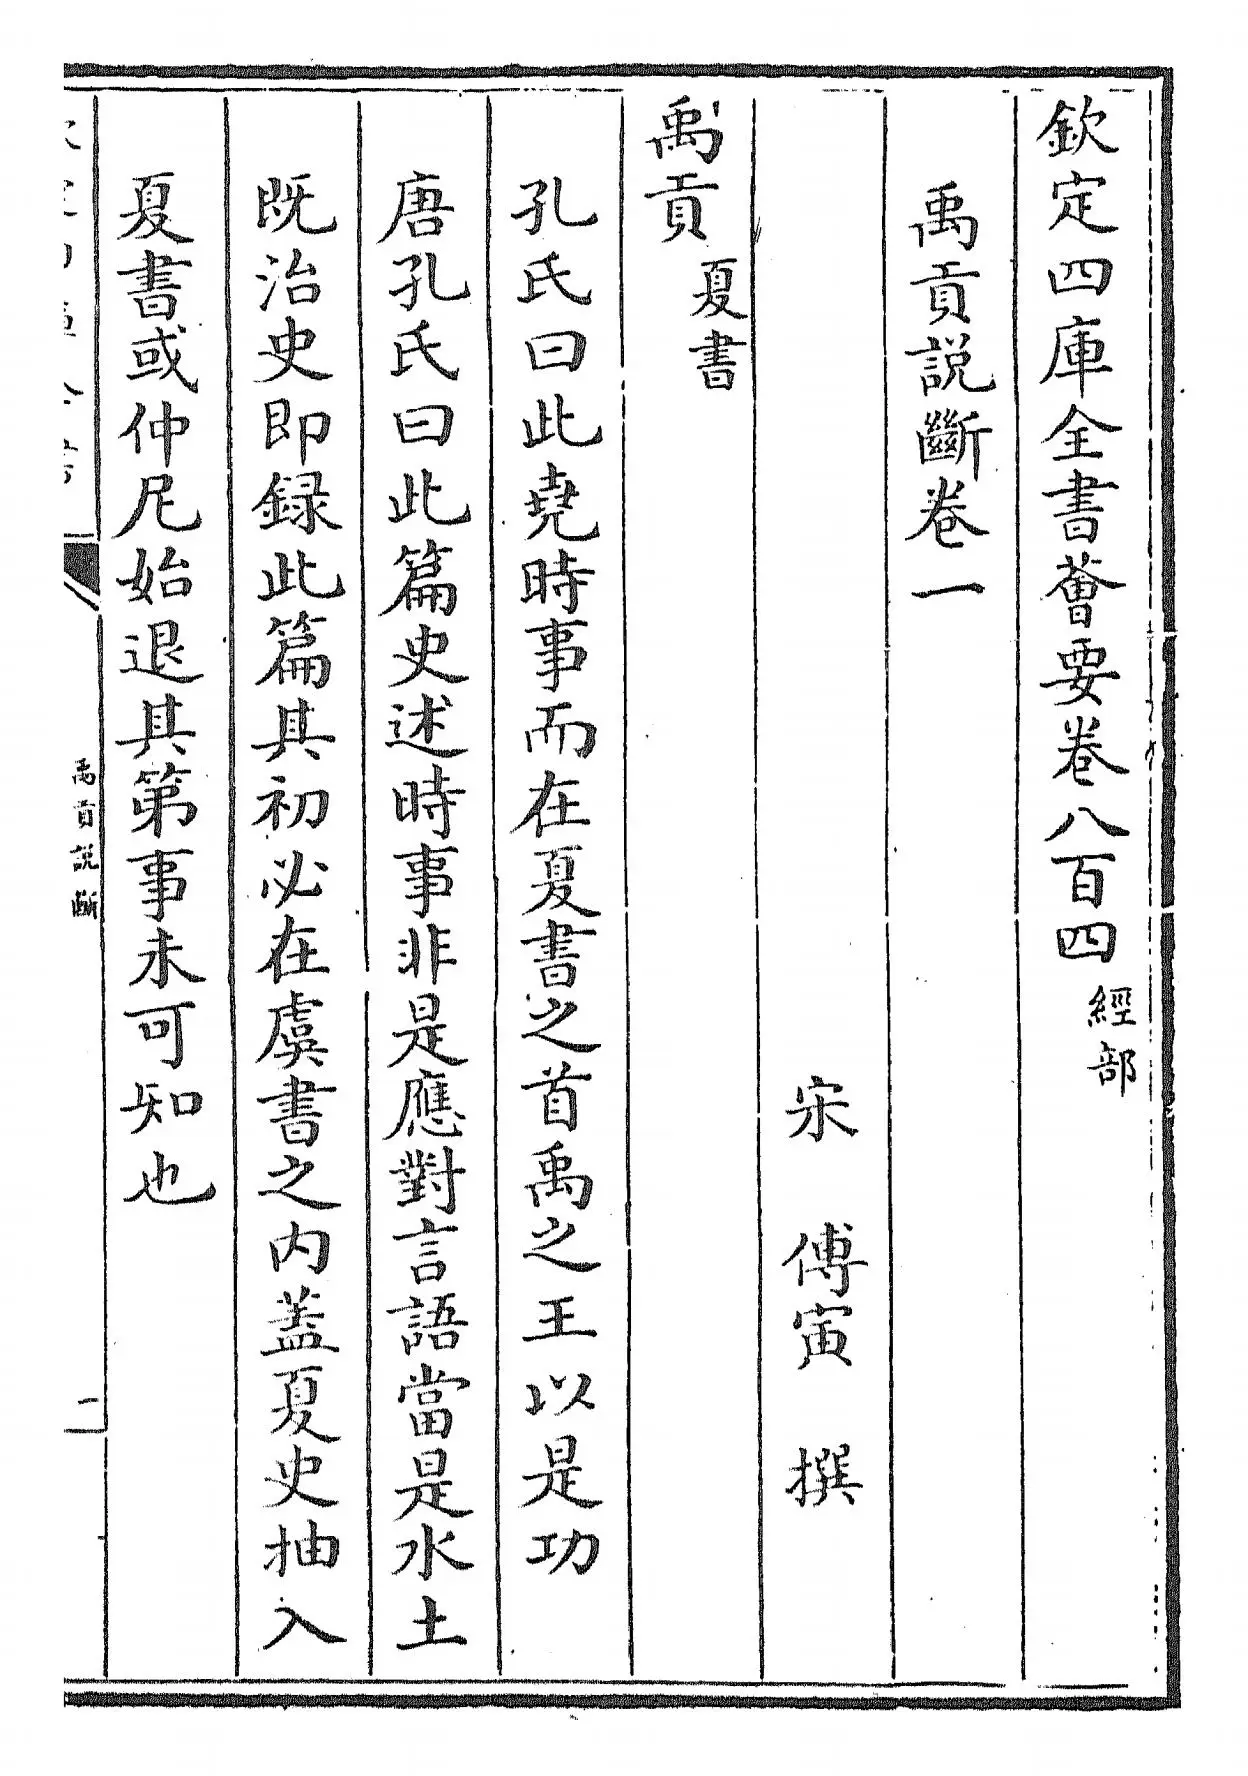 欽定四庫全書薈要卷八百四 經部
禹貢說斷卷一
宋 傅寅 撰
禹貢 夏書
孔氏曰此堯時事而在夏書之首禹之王以是功
唐孔氏曰此篇史述時事非是應對言語當是水土
既治史即録此篇其初必在虞書之内蓋夏史抽入
夏書或仲尼始退其第事未可知也
禹貢說斷
一